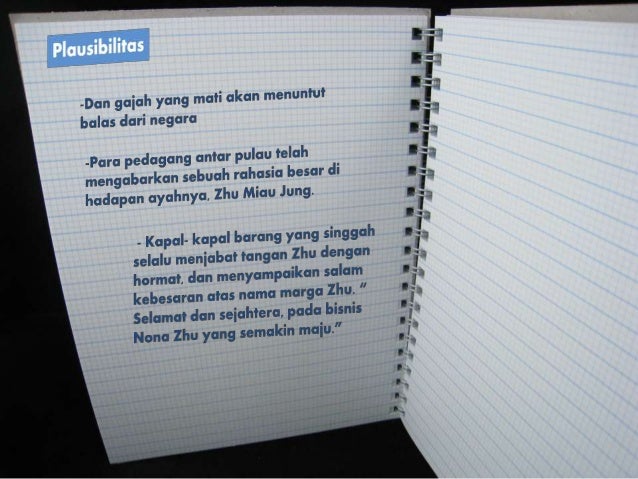 Plausibilitas
-Dan gajah yang mati akan menuntut
balas dari negara
-Para pedagang antar pulau telah
mengabarkan sebuah rahasia besar di
hadapan ayahnya, Zhu Miau Jung.
- Kapal- kapal barang yang singgah
selalu menjabat tangan Zhu dengan
hormat, dan menyampaikan salam
kebesaran atas nama marga Zhu. “
Selamat dan sejahtera, pada bisnis
Nona Zhu yang semakin maju.”